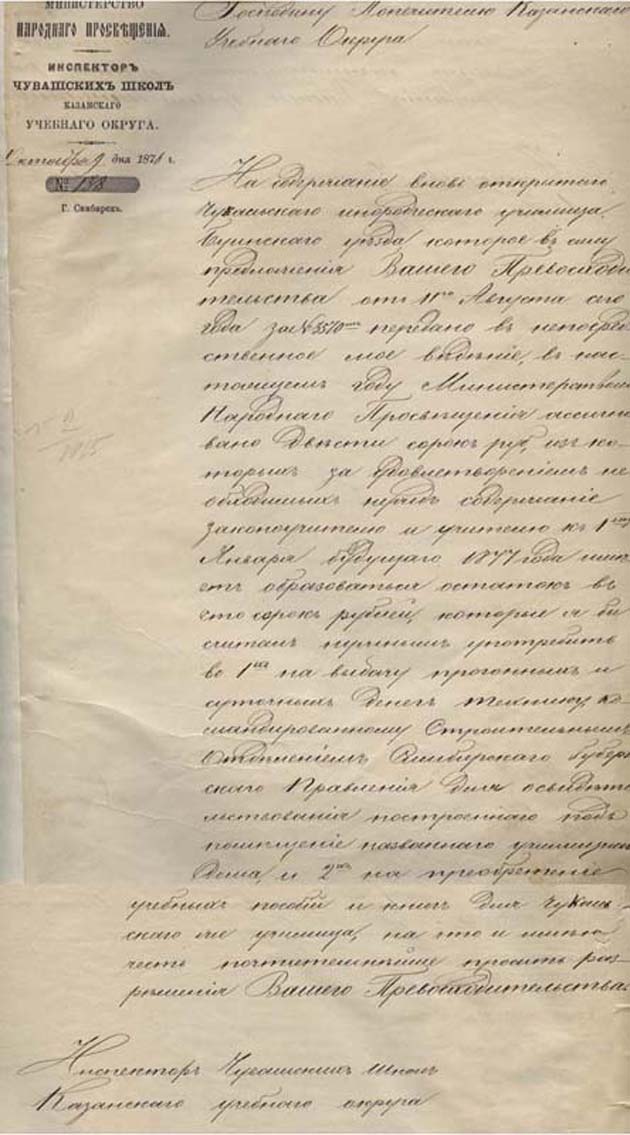 МИНИСТЕРСТВО
НАРОДНАГО ПРОСВѢЩЕНІЯ.
ИНСПЕКТОРЪ
ЧУВАШСКИХЪ ШКОЛЪ
КАЗАНСКАГО
УЧЕБНАГО ОКРУГА.
Октября 9 дня 1876 г.
№ 138
Г. Симбирскъ.
Господину Попечителю Казанскаго
Учебнаго Округа
На содержаніе вновь открытаго
инородческаго училища,
Буинскаго уѣзда, которое въ силу
предложенія Вашего Превосходи
тельства отъ 11го Августа сего
года за № 3570 передано въ непосред
ственное мое вѣдѣніе, въ нас
тоящемъ году Министерствомъ
Народнаго Просвѣщенія ассигно
вано двѣсти сорокъ руб., изъ ко
торыхъ за удовлетвореніемъ не
обходимыхъ нуждъ содержаніе
законоучителю и учителю къ 1му
Января будущаго 1877 года имѣ
етъ образоваться остатокъ въ
сто сорокъ рублей, которые я бы
считалъ нужнымъ употребить
во 1хъ на выдачу прогонныхъ и
суточныхъ денегъ технику, ко
мандированному Строительнымъ
Отдѣленіемъ Симбирскаго Губерн
скаго Правленія для освидѣте
льствованія построеннаго подъ
помѣщеніе названнаго училища
дома, и 2хъ на преобретеніе
учебныхъ пособій и книгъ для
скаго же училища, на что и имѣю
честь почтительнѣйше просить раз-
рѣшенія Вашего Превосходительства.
Инспекторъ Чувашскихъ школъ
Казанскаго учебнаго округа